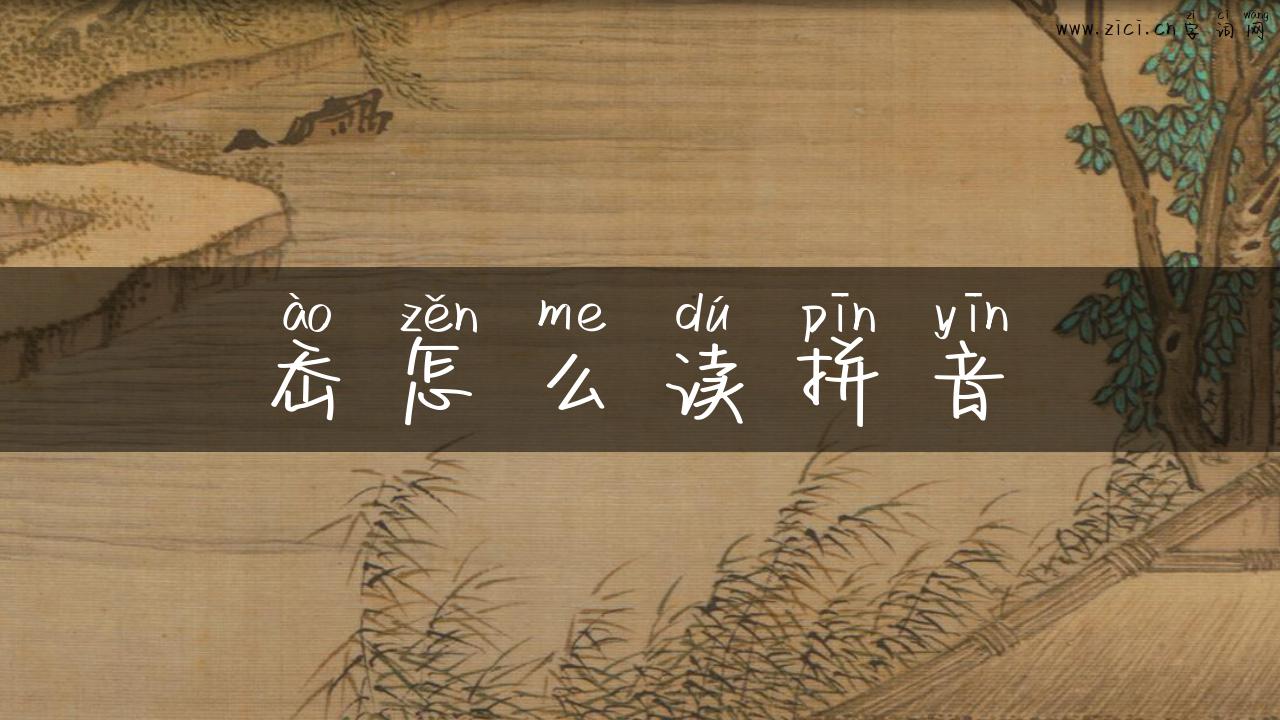 zì cí wǎng
www.zici.cn 字词网
ào zěn me dú pīn yīn
岙怎么读拼音